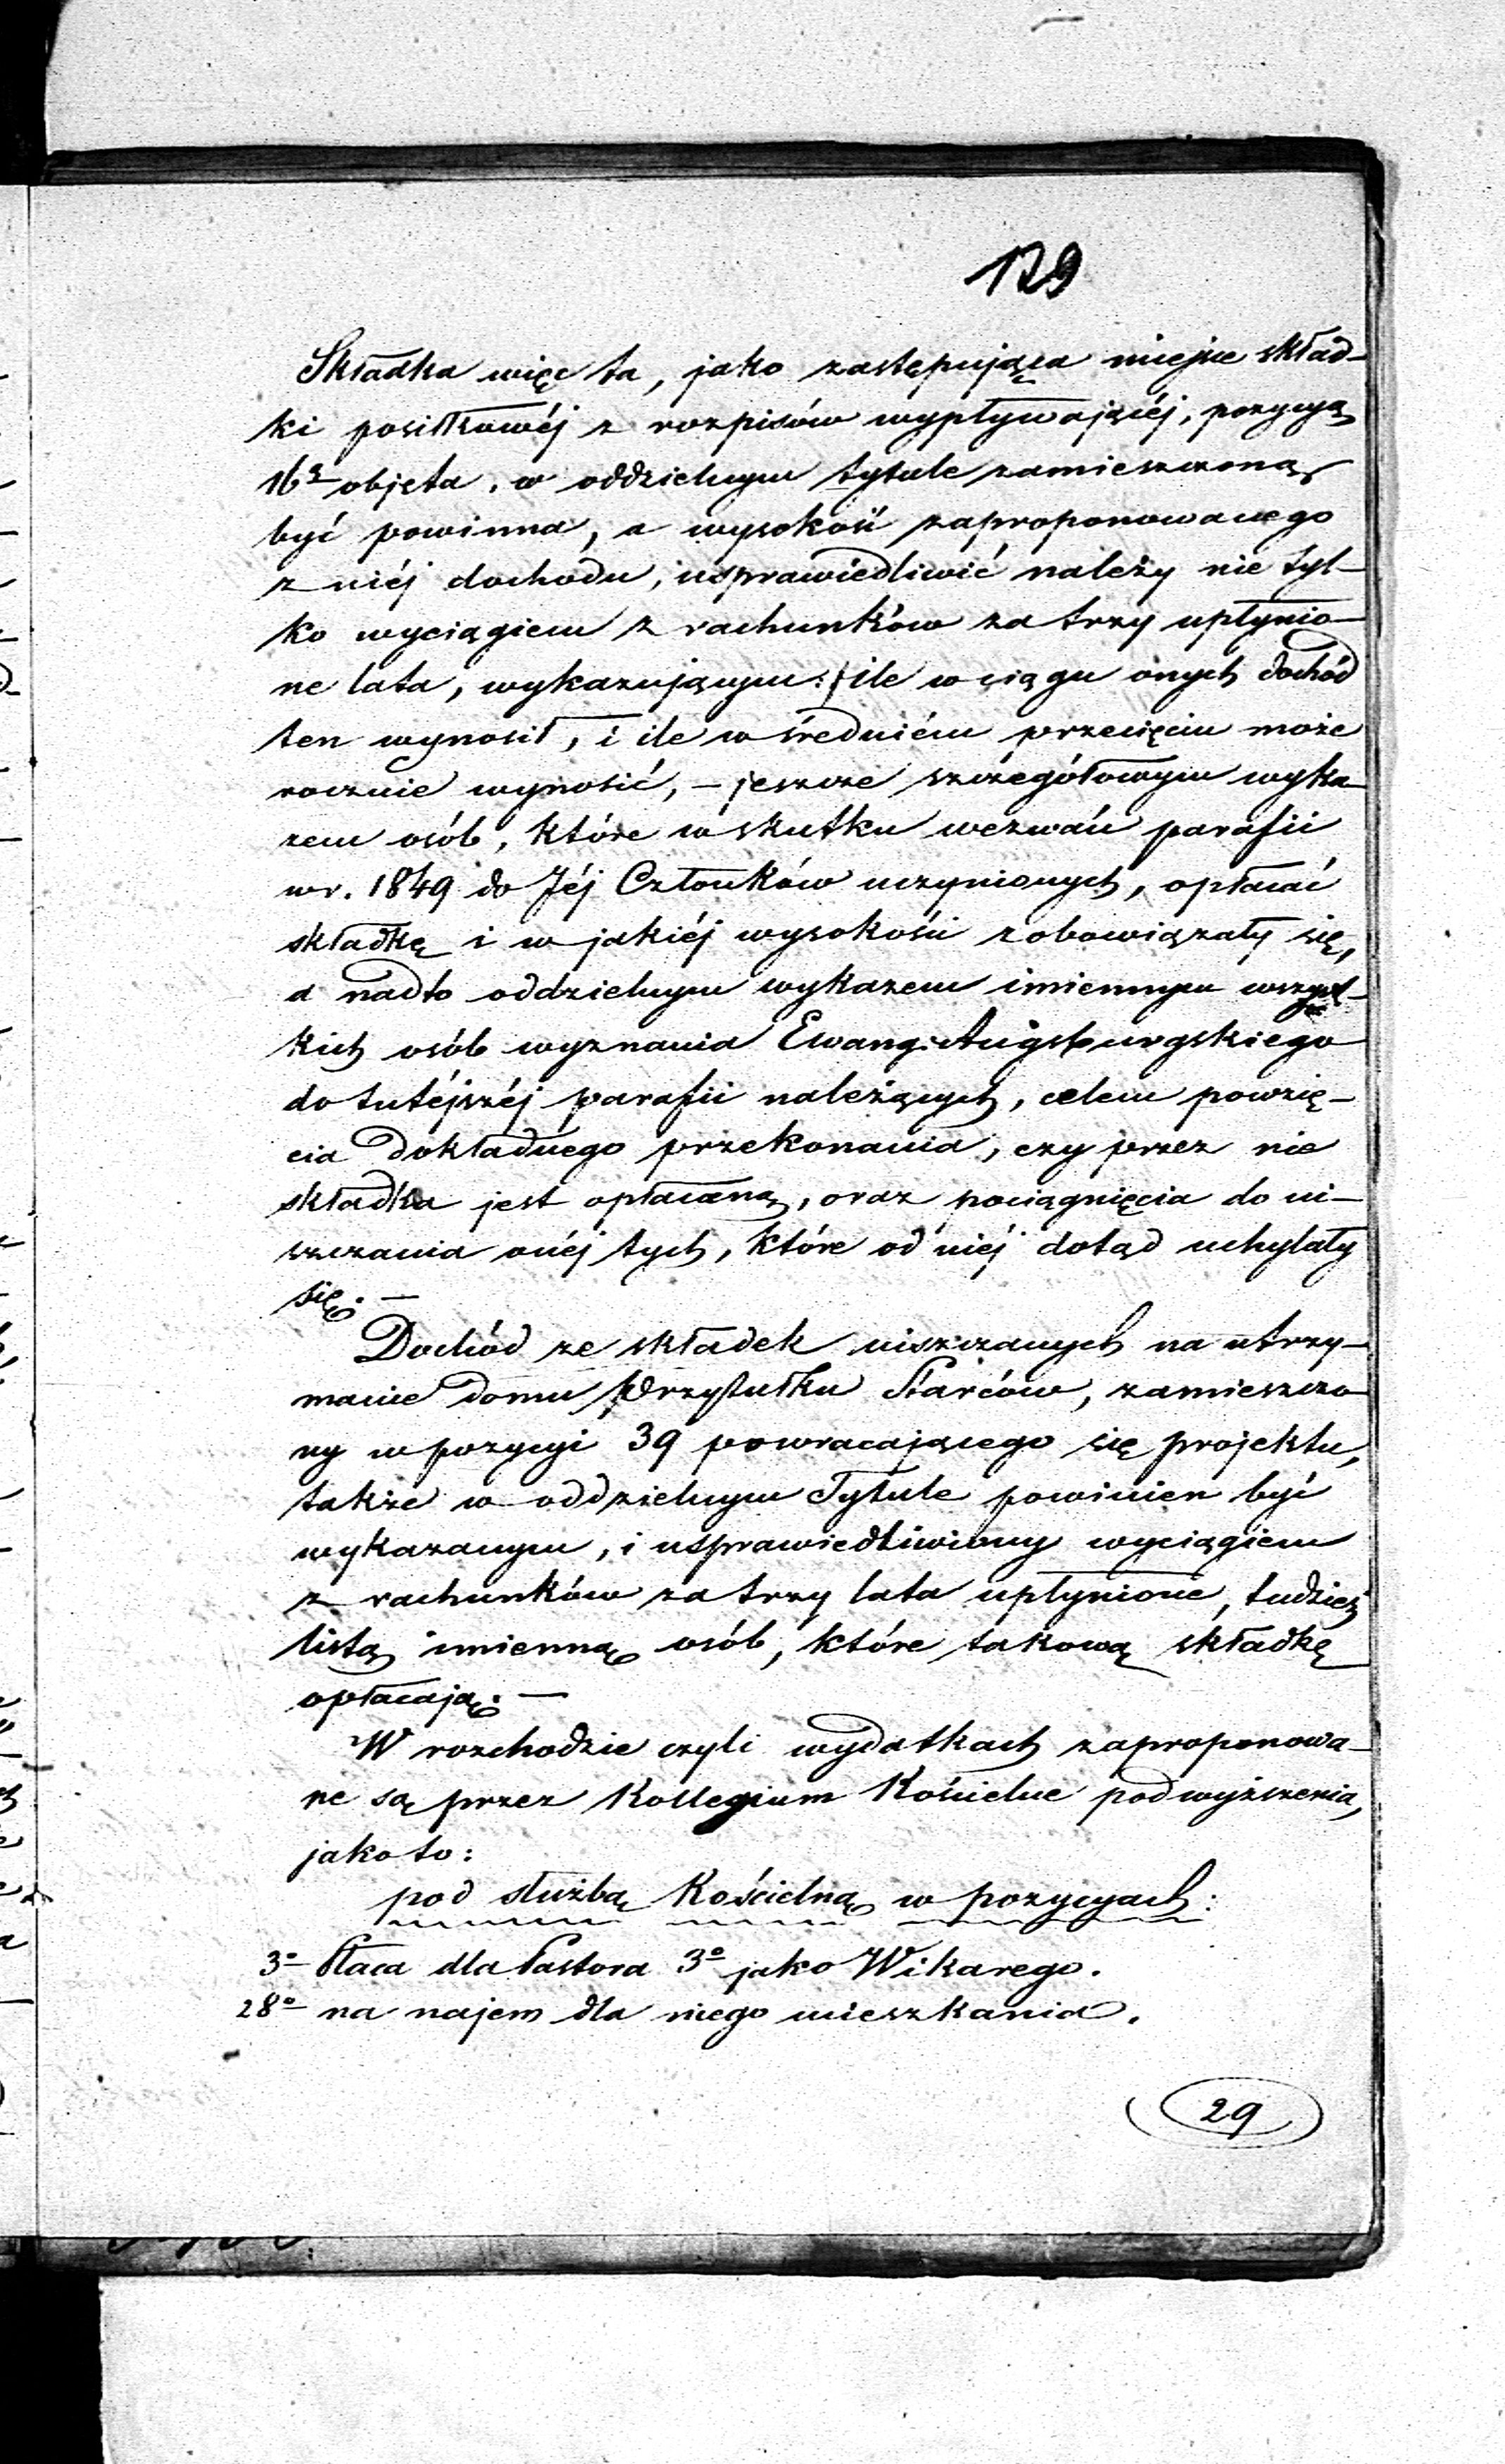 129
Składka więc ta, jako zastępująca miejsce skład-
ki posiłkowéj z rozpisów wypływającéj, pozycyą
16ą objęta, w oddzielnym tytule zamieszczoną
być powinna, a wysokość zaproponowanego
z niéj dochodu, usprawiedliwić należy nie tyl-
ko wyciągiem z rachunków za trzy upłynio-
ne lata, wykazującym: ile w ciągu onych dochód
ten wynosił, i ile w średniém przecięciu może
rocznie wynosić, – jeszcze szczegółowym wyka-
zem osób, które w skutku wezwań parafii
w r. 1849 do Jéj Członków uczynionych, opłacać
składkę i w jakiéj wysokości zobowiązały się,
a nadto oddzielnym wykazem imiennym wszyst-
kich osób wyznania Ewang: Augsburgskiego
do tutéjszéj parafii należących, celem powzię-
cia dokładnego przekonania, czy przez nie
składka jest opłacaną, oraz pociągnięcia do ui-
szczania onéj tych, które od niéj dotąd uchylały
się. –
Dochód ze składek uiszczanych na utrzy-
manie domu Przytułku Starców, zamieszczo-
ny w pozycyi 39 powracającego się projektu,
także w oddzielnym Tytule powinien być
wykazanym, i usprawiedliwiony wyciągiem
z rachunków za trzy lata upłynione, tudzież
listą imienną osób, które takową składkę
opłacają. –
W rozchodzie czyli wydatkach zaproponowa-
ne są przez Kollegium Kościelne podwyższenia,
jako to:
pod służbą Kościelną w pozycyach:
3º Płaca dla Pastora 3º jako Wikarego.
28º na najem dla niego mieszkania.
29